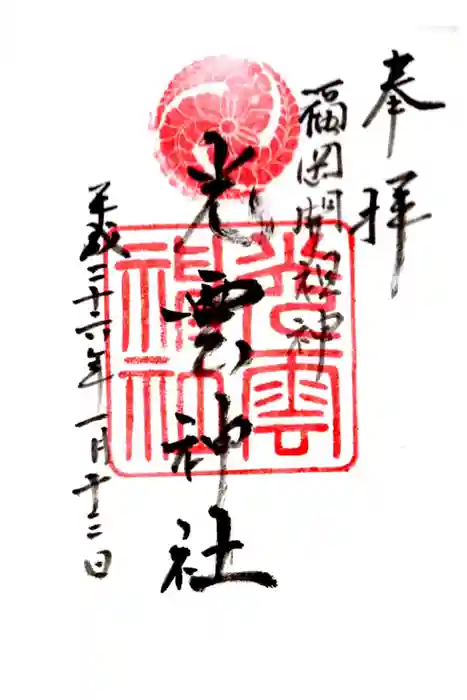 奉拝
福岡開祖神
光雲神社
平成二十六年一月十二日
光雲
神社